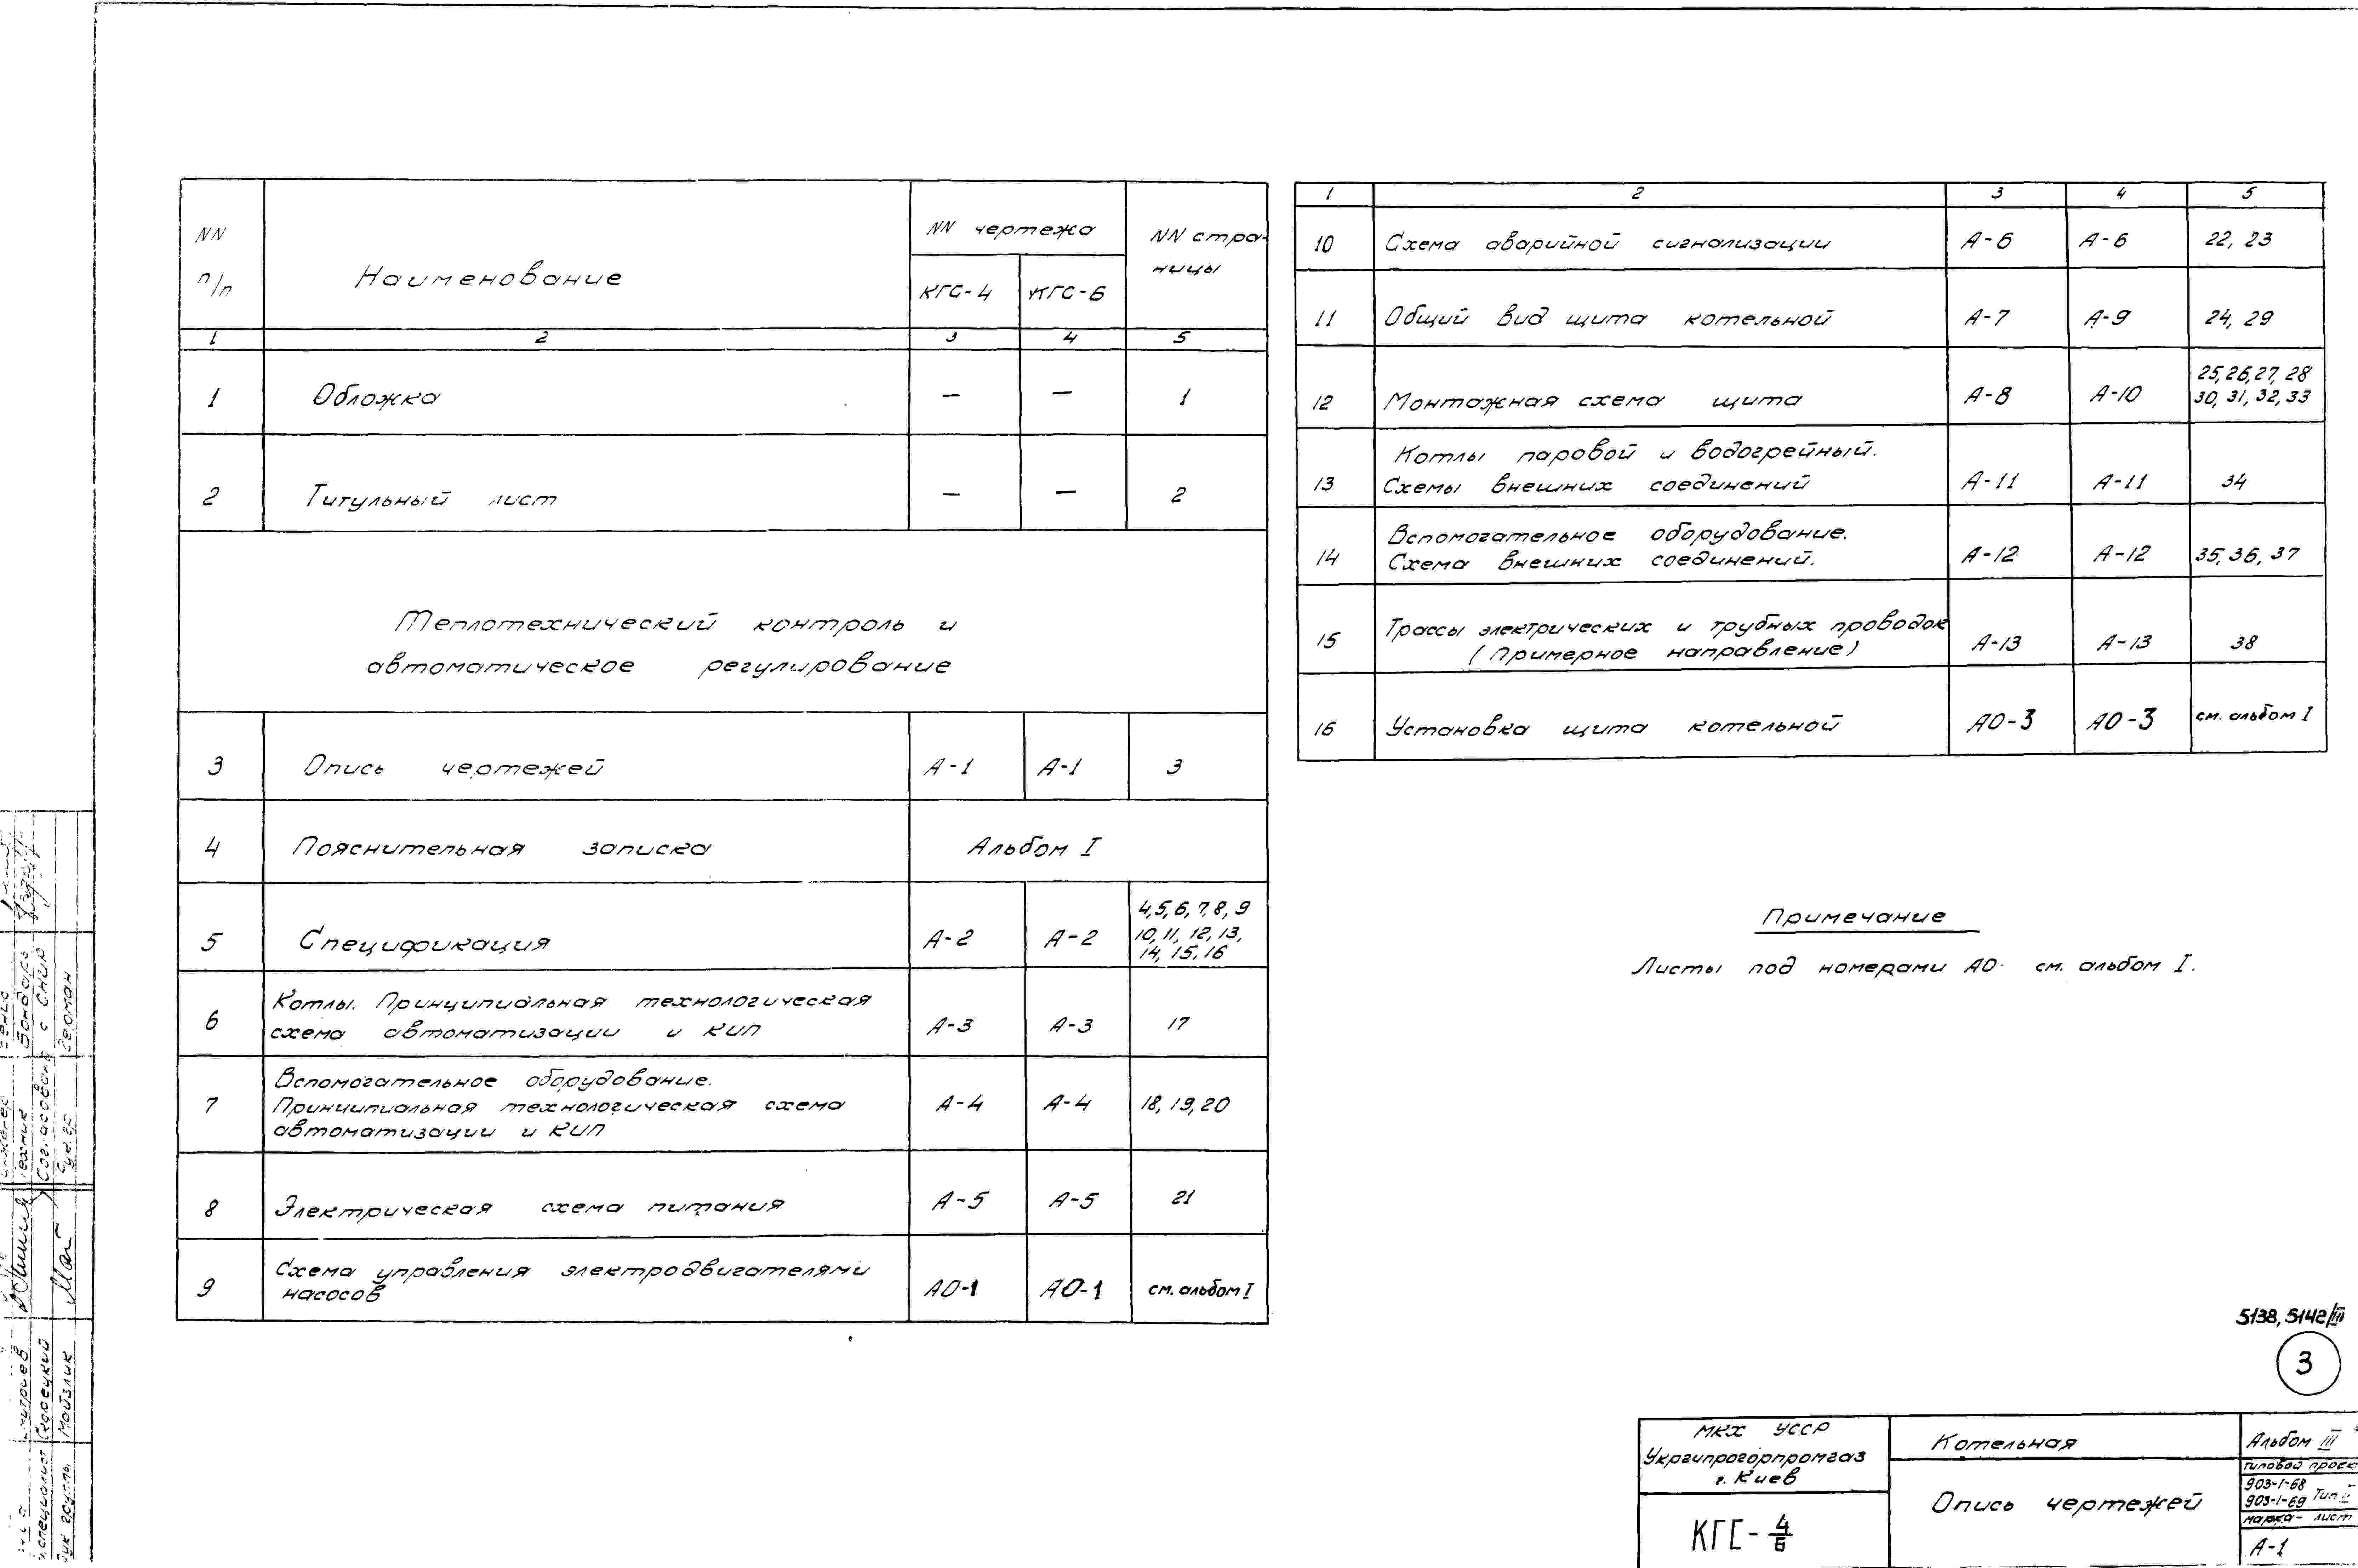 NN п/п
Наименование
NN чертежа
КГС-4 КГС-6
NN стра-
ницы
1 2 3 4 5
1 Обложка — — 1
2 Титульный лист — — 2
Теплотехнический контроль и
автоматическое регулирование
3 Опись чертежей А-1 А-1 3
4 Пояснительная записка Альбом I
5 Спецификация А-2 А-2 4,5,6,7,8,9
10,11,12,13,
14,15,16
6 Котлы. Принципиальная технологическая
схема автоматизации и КИП А-3 А-3 17
7 Вспомогательное оборудование.
Принципиальная технологическая схема А-4 А-4 18,19,20
автоматизации и КИП
8 Электрическая схема питания А-5 А-5 21
9 Схема управления электродвигателями
насосов АО-1 АО-1 см. альбом I
1 2 3 4 5
10 Схема аварийной сигнализации А-6 А-6 22, 23
11 Общий вид щита котельной А-7 А-9 24, 29
12 Монтажная схема щита А-8 А-10 25,26,27,28
30,31,32,33
13 Котлы паровой и водогрейный.
Схемы внешних соединений А-11 А-11 34
14 Вспомогательное оборудование.
Схема внешних соединений. А-12 А-12 35,36,37
15 Трассы электрических и трубных проводок
(Примерное направление) А-13 А-13 38
16 Установка щита котельной АО-3 АО-3 см. альбом I
Примечание
Листы под номерами АО см. альбом I.
5138, 5142/III
3
МКХ УССР
Укргипрогорпромгаз
г. Киев
КГС-4/6
Котельная
Опись чертежей
Альбом III
типовой проект
903-1-68
903-1-69 Тип
марка- лист
А-1
Бондарь
Согласовано с СНИР
Зерман
Скарецкий
Майзлик